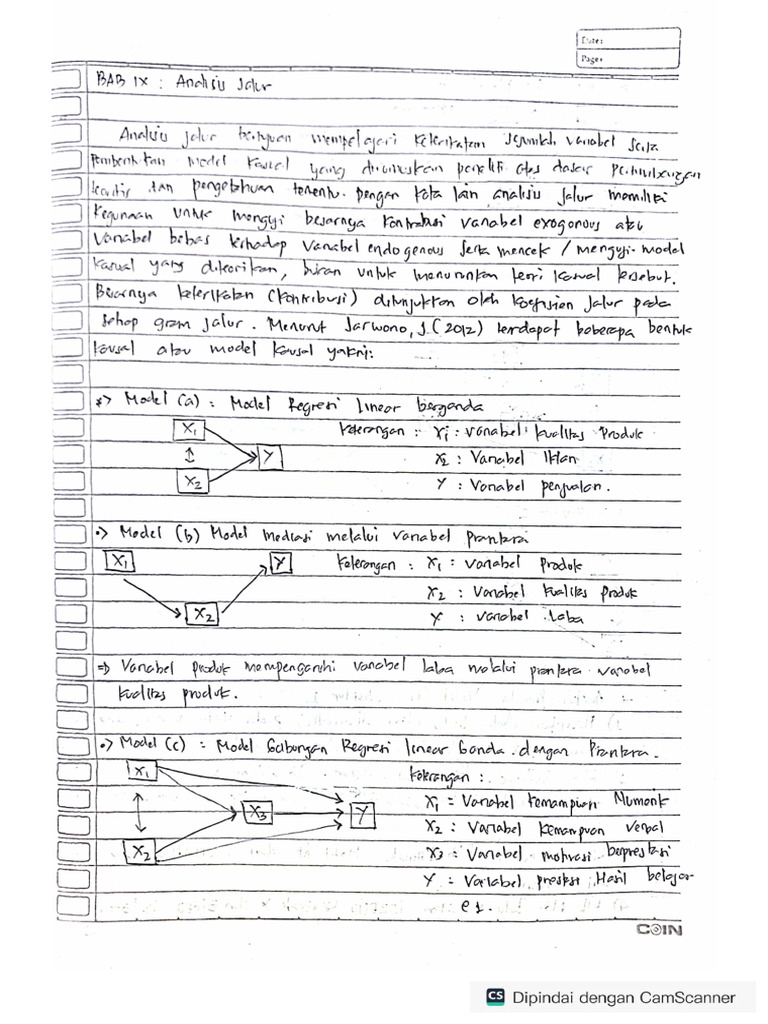 Date:
Page:
BAB IX : Analisis Jalur
Analisis jalur bertujuan mempelajari keterikatan sejumlah variabel serta
pembentukan model kausal yang dirumuskan peneliti atas dasar pertimbangan
teoritis dan pengetahuan tertentu. Dengan kata lain analisis jalur memiliki
kegunaan untuk menguji besarnya kontribusi variabel exogonous atau
variabel bebas terhadap variabel endogenous serta mencek / menguji model
kausal yang diteorikan, bukan untuk menurunkan teori kausal tersebut.
Besarnya keterikatan (kontribusi) ditunjukkan oleh koefisien jalur pada
setiap gram jalur. Menurut Sarwono, J. (2012) terdapat beberapa bentuk
kausal atau model kausal yakni:
Model (a) : Model Regresi linear berganda
X1 Keterangan : X1 : Variabel kualitas Produk
Y X2 : Variabel Iklan
X2 Y : Variabel penjualan.
Model (b) Model mediasi melalui variabel Prantara
X1 Y Keterangan : X1 : Variabel Produk
X2 : Variabel kualitas Produk
X2 Y : Variabel Laba
=> Variabel produk mempengaruhi variabel laba melalui prantara variabel
kualitas produk.
Model (c) : Model Gabungan Regresi linear Ganda dengan Prantara.
X1 Keterangan :
X3 Y X1 = Variabel kemampuan Numerik
X2 : Variabel kemampuan verbal
X2 X3 : Variabel motivasi berprestasi
Y : Variabel prestasi Hasil belajar
es.
COIN
CS Dipindai dengan CamScanner